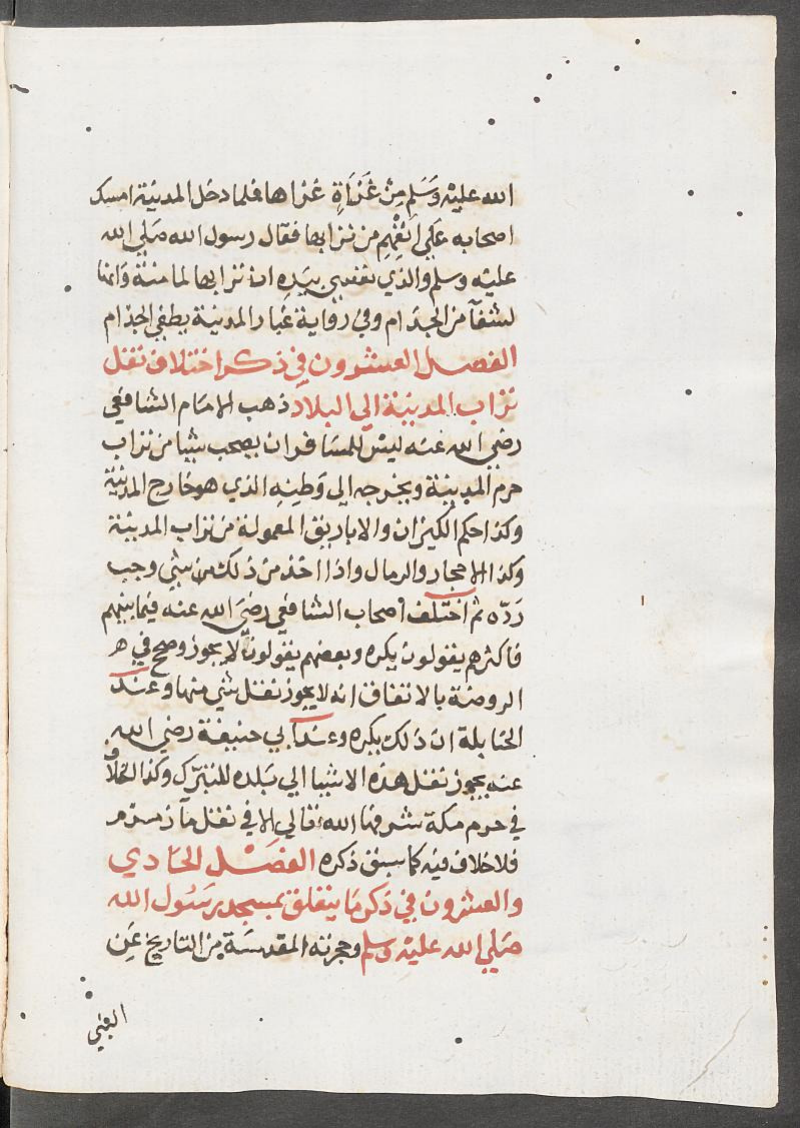 الله عليه وسلم من غزاة غزاها فلما دخل المدينة امسك
اصحابه علي انفهم من ترابها فقال رسول الله صلي الله
عليه وسلم والذي نفسي بيده ان ترابها لمامنة وانها
لشفآ من الجذام وفي رواية غبار المدينة يطفي الجذام
الفصل العشرون في ذكر اختلاف نقل
تراب المدينة الي البلاد ذهب الامام الشافعي
رضي الله عنه ليس للمسافر ان يصحب شيا من تراب
حرم المدينة ويخرجه الي وطنه الذي هو خارج المدينة
وكذا حكم الكيزان والاباريق المعمولة من تراب المدينة
وكذا الاحجار والرمال واذا اخذ من ذلك من شي وجب
رده ثم اختلف اصحاب الشافعي رضي الله عنه فيما بينهم
فاكثرهم يقولون يكره وبعضهم يقولون لا يجوز وصح في
الروضة بالاتفاق انه لا يجوز نقل شي منها وعند
الحنابلة ان ذلك يكره وعند ابي حنيفة رضي الله
عنه يجوز نقل هذه الاشيا الي بلده للتبرك وكذا الخلاف
في حرم مكة شرفها الله تعالي الا في نقل مآ زمزم
فلا خلاف فيه كما سبق ذكره الفصل الحادي
والعشرون في ذكر ما يتعلق بمسجد رسول الله
صلي الله عليه وسلم وحجرته المقدسة من التاريخ عن